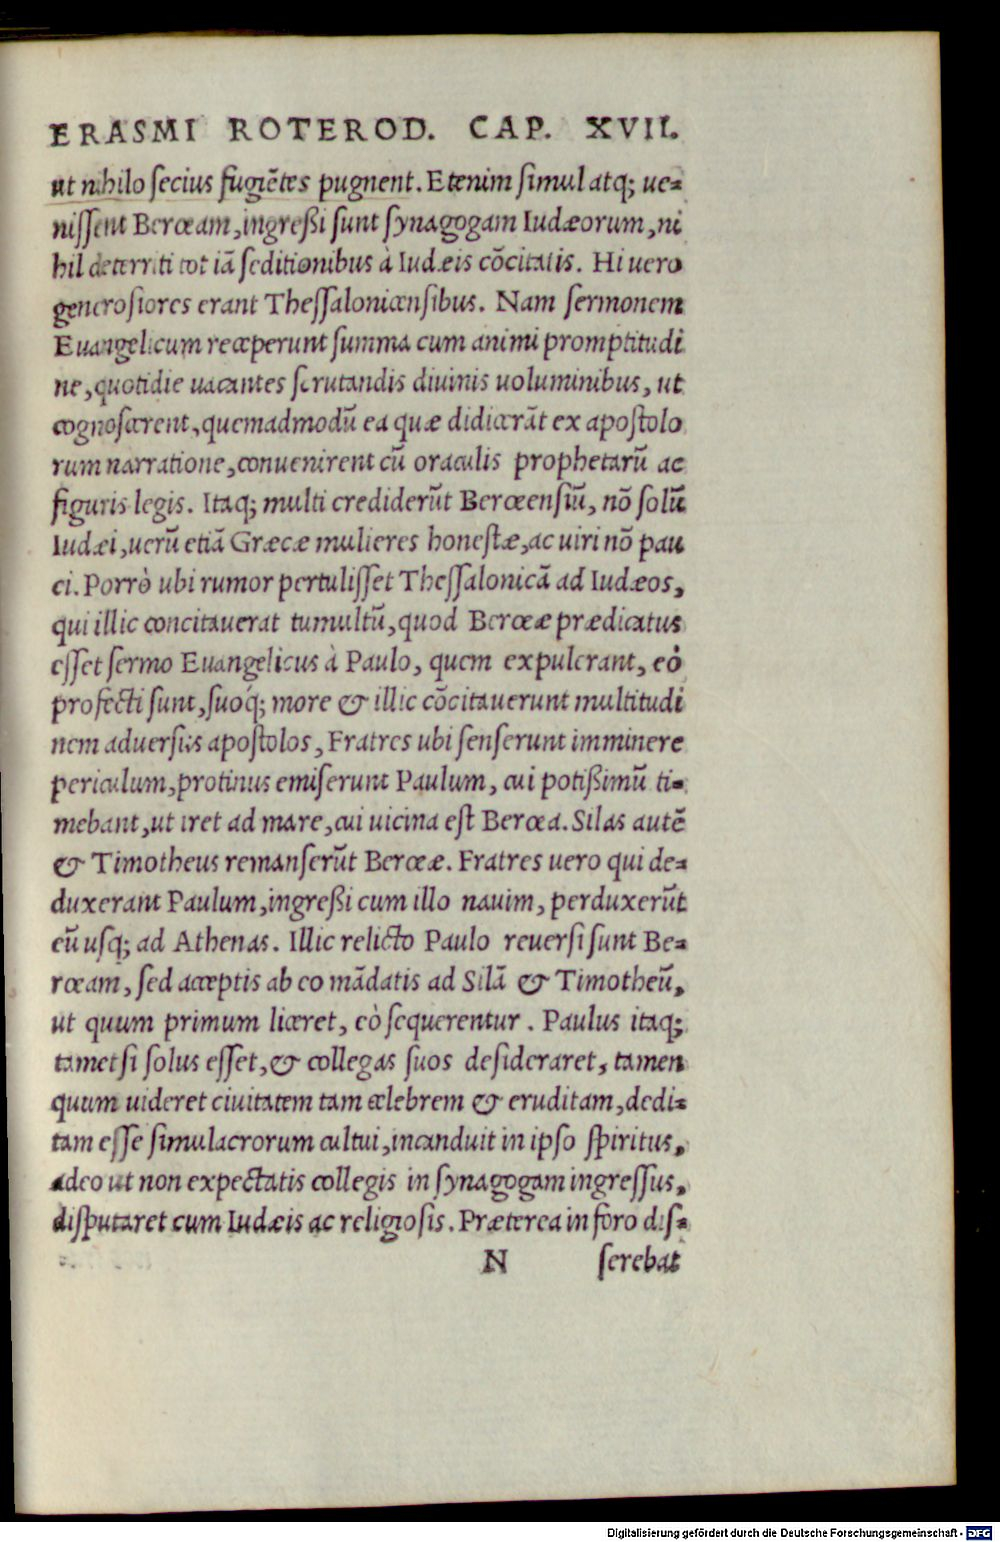 ERASMI ROTEROD. CAP. XVII.
ut nihilo ſecius fugiẽtes pugnent. Etenim ſimul atq; ue-
niſſent Berœam, ingreßi ſunt ſynagogam Iudæorum, ni
hil deterriti tot iã ſeditionibus à Iudæis cõcitatis. Hi uero
generoſiores erant Theſſalonicenſibus. Nam ſermonem
Euangelicum receperunt ſumma cum animi promptitudi
ne, quotidie uacantes ſcrutandis diuinis uoluminibus, ut
cognoſcerent, quemadmodũ ea quæ didicerãt ex apoſtolo
rum narratione, conuenirent cũ oraculis prophetarũ ac
figuris legis. Itaq; multi crediderũt Berœenſiũ, nõ ſolũ
Iudæi, uerũ etiã Græcæ mulieres honeſtæ, ac uiri nõ pau
ci. Porrò ubi rumor pertuliſſet Theſſalonicã ad Iudæos,
qui illic concitauerat tumultũ, quod Berœæ prædicatus
eſſet ſermo Euangelicus à Paulo, quem expulerant, eò
profecti ſunt, ſuoq́; more & illic cõcitauerunt multitudi
nem aduerſus apoſtolos, Fratres ubi ſenſerunt imminere
periculum, protinus emiſerunt Paulum, cui potißimũ ti-
mebant, ut iret ad mare, cui uicina eſt Berœa. Silas autẽ
& Timotheus remanſerũt Berœæ. Fratres uero qui de-
duxerant Paulum, ingreßi cum illo nauim, perduxerũt
eũ uſq; ad Athenas. Illic relicto Paulo reuerſi ſunt Be-
rœam, ſed acceptis ab eo mãdatis ad Silã & Timotheũ,
ut quum primum liceret, eò ſequerentur. Paulus itaq;
tametſi ſolus eſſet, & collegas ſuos deſideraret, tamen
quum uideret ciuitatem tam celebrem & eruditam, dedi-
tam eſſe ſimulacrorum cultui, incanduit in ipſo ſpiritus,
adeo ut non expectatis collegis in ſynagogam ingreſſus,
diſputaret cum Iudæis ac religioſis. Præterea in foro diſ-
N ſerebat
Digitalisierung gefördert durch die Deutsche Forschungsgemeinschaft - DFG